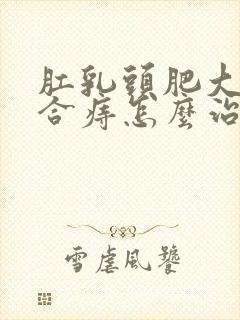 肛乳頭肥大
合痔怎麼治
雪虐風饕